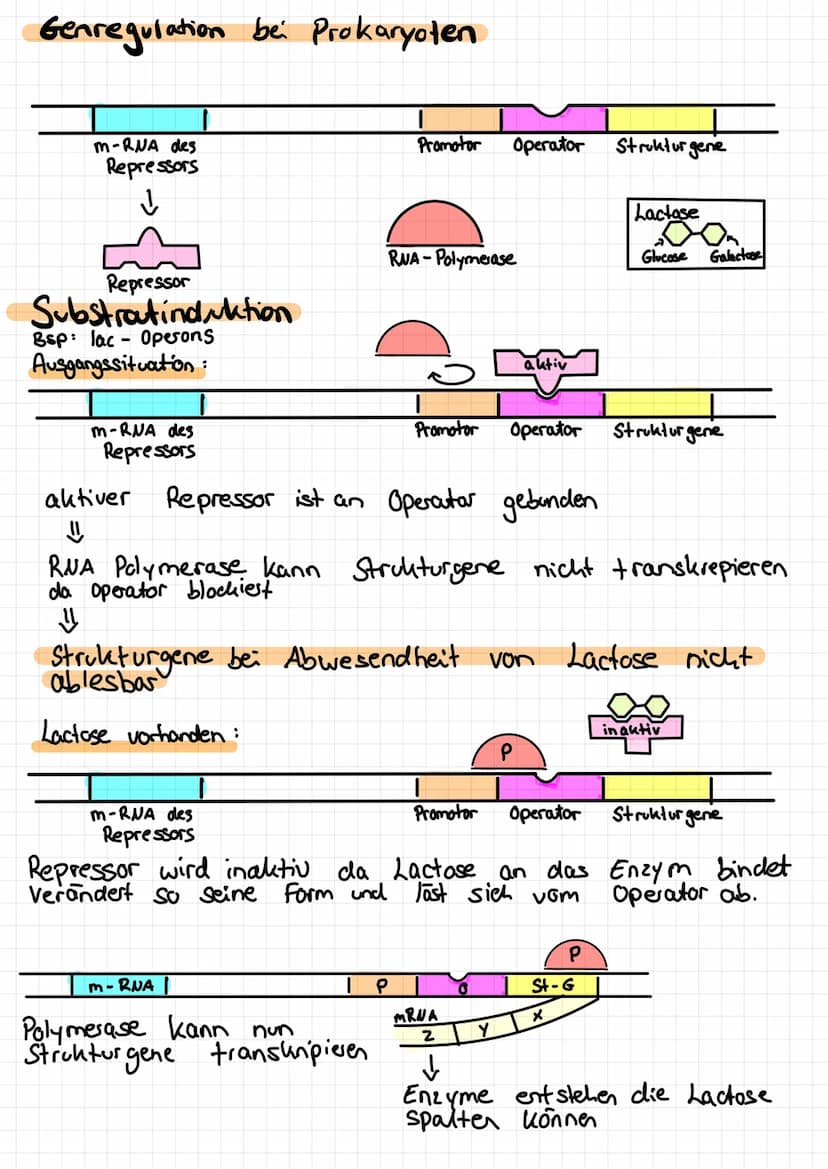 Genregulation bei Prokaryoten
m-RNA des
Repressors
Promotor Operator Strukturgene
Repressor
RNA-Polymerase
Lactose
Glucose Galactose
Substratinduktion
Bsp: lac - Operons
Ausgangssituation:
aktiv
m-RNA des
Repressors
Promotor Operator Strukturgene
aktiver Repressor ist an Operator gebunden
RNA Polymerase kann Strukturgene nicht transkrepieren
da Operator blockiest
Strukturgene bei Abwesendheit von Lactose nicht
ablesbar
Lactose vorhanden:
inaktiv
P
m-RNA des
Repressors
Promotor Operator Strukturgene
Repressor wird inaktiv da Lactose an das Enzym bindet
verändert so seine Form und löst sich vom Operator ab.
P
m-RNA P O St-G
mRNA
Z Y X
Polymerase kann nun
Strukturgene transkripieren
Enzyme entstehen die Lactose
spalten können